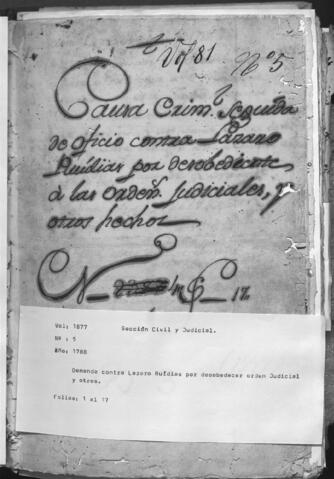 Vol 81
Nº 5
Causa Crim.l Seguida
de oficio contra Lazaro
Ruidias por desobediente
a las orden.s Judiciales, y
otros hechos
N
17.
Vol: 1877 Sección Civil y Judicial.
Nº : 5
Año: 1788
Demanda contra Lazaro Ruídias por desobedecer orden Judicial
y otros.
Folios: 1 al 17